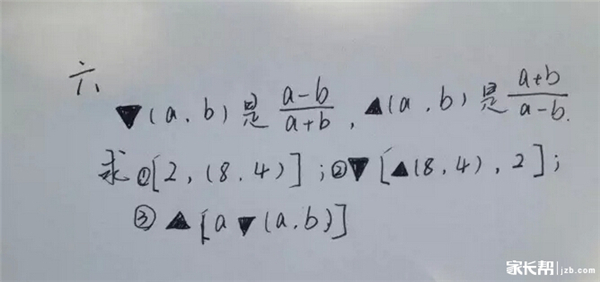 六、
▼(a,b)是 a-b/a+b ,▲(a,b)是 a+b/a-b.
求①[2,(8,4)];②▼[▲(8,4),2];
③▲[a▼(a,b)]
家长帮 jzb.com